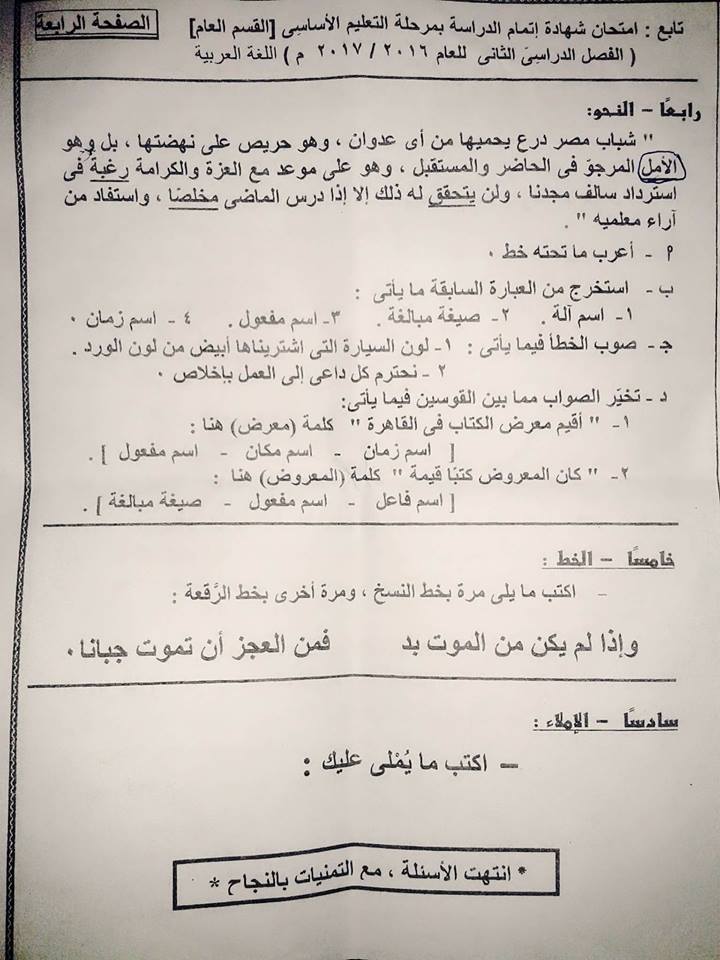 تابع : امتحان شهادة إتمام الدراسة بمرحلة التعليم الأساسى [القسم العام] الصفحة الرابعة
( الفصل الدراسىّ الثانى للعام ٢٠١٦ / ٢٠١٧ م ) اللغة العربية
رابعًا – النحو:
" شباب مصر درع يحميها من أى عدوان ، وهو حريص على نهضتها ، بل وهو
الأمل المرجوّ فى الحاضر والمستقبل ، وهو على موعد مع العزة والكرامة رغبة فى
استرداد سالف مجدنا ، ولن يتحقق له ذلك إلا إذا درس الماضى مخلصًا ، واستفاد من
آراء معلميه " .
أ - أعرب ما تحته خط ٠
ب - استخرج من العبارة السابقة ما يأتى :
١- اسم آلة . ٢- صيغة مبالغة . ٣- اسم مفعول . ٤ - اسم زمان ٠
جـ - صوب الخطأ فيما يأتى : ١- لون السيارة التى اشتريناها أبيض من لون الورد .
٢ - نحترم كل داعى إلى العمل بإخلاص ٠
د - تخيّر الصواب مما بين القوسين فيما يأتى:
١- " أقيم معرض الكتاب فى القاهرة " كلمة (معرض) هنا :
[ اسم زمان - اسم مكان - اسم مفعول ] .
٢- " كان المعروض كتبًا قيمة " كلمة (المعروض) هنا :
[ اسم فاعل - اسم مفعول - صيغة مبالغة ] .
خامسًا – الخط :
- اكتب ما يلى مرة بخط النسخ ، ومرة أخرى بخط الرُّقعة :
وإذا لم يكن من الموت بد فمن العجز أن تموت جبانا٠
سادسًا – الإملاء :
– اكتب ما يُمْلى عليك :
* انتهت الأسئلة ، مع التمنيات بالنجاح *